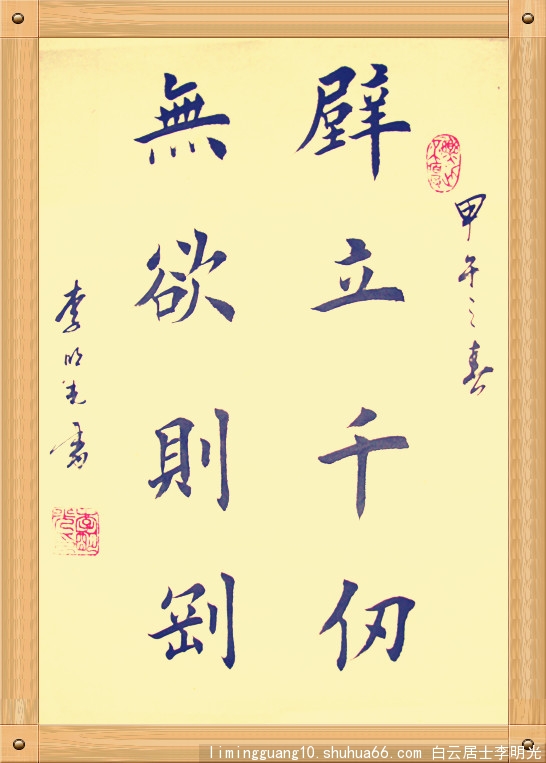 甲午之春
壁立千仞
無欲則剛
李明光書
limingguang10.shuhua66.com 白云居士李明光